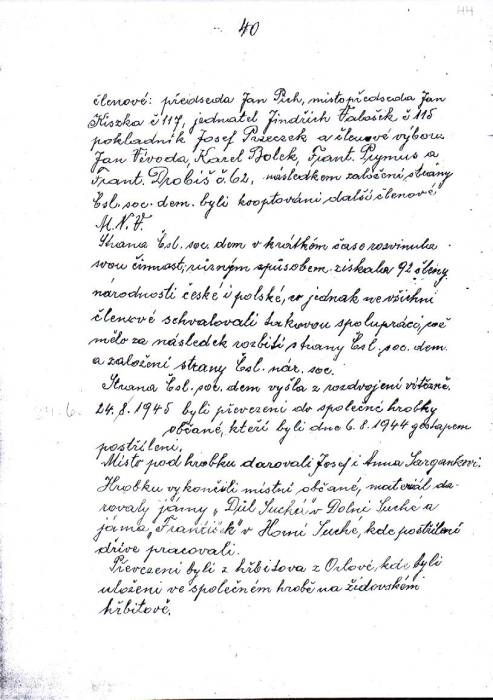 44
40
členové: předseda Jan Pich, místopředseda Jan
Kiszka č 117, jednatel Jindřich Valošek č 115
pokladník Josef Pszeczek a členové výboru
Jan Vévoda, Karel Bolek, Frant. Prymus a
Frant. Drobiš č. 62, následkem založení strany
Čsl. soc. dem. byli kooptováni další členové
M.N.V.
Strana Čsl. soc. dem v krátkém čase rozvinula
svou činnost, různým způsobem získala 92 členy
národnosti české i polské, jednak ne všichni
členové schvalovali takovou spolupráci, což
mělo za následek rozbití strany Čsl. soc. dem.
a založení strany Čsl. nár. soc.
Strana Čsl. soc. dem vyšla z rozdvojení vítězně.
24. 6. 24. 8. 1945 byli převezeni do společné hrobky
občané, kteří byli dne 6. 8. 1944 gestapem
postříleni.
Místo pod hrobku darovali Josef i Anna Sargankovi.
Hrobku vykončili místní občané, materiál da-
rovaly jámy „Důl Suchá" v Dolní Suché a
jáma „František" v Horní Suché, kde postřílení
dříve pracovali.
Převezeni byli z hřbitova z Orlové, kde byli
uloženi ve společném hrobě na židovském
hřbitově.